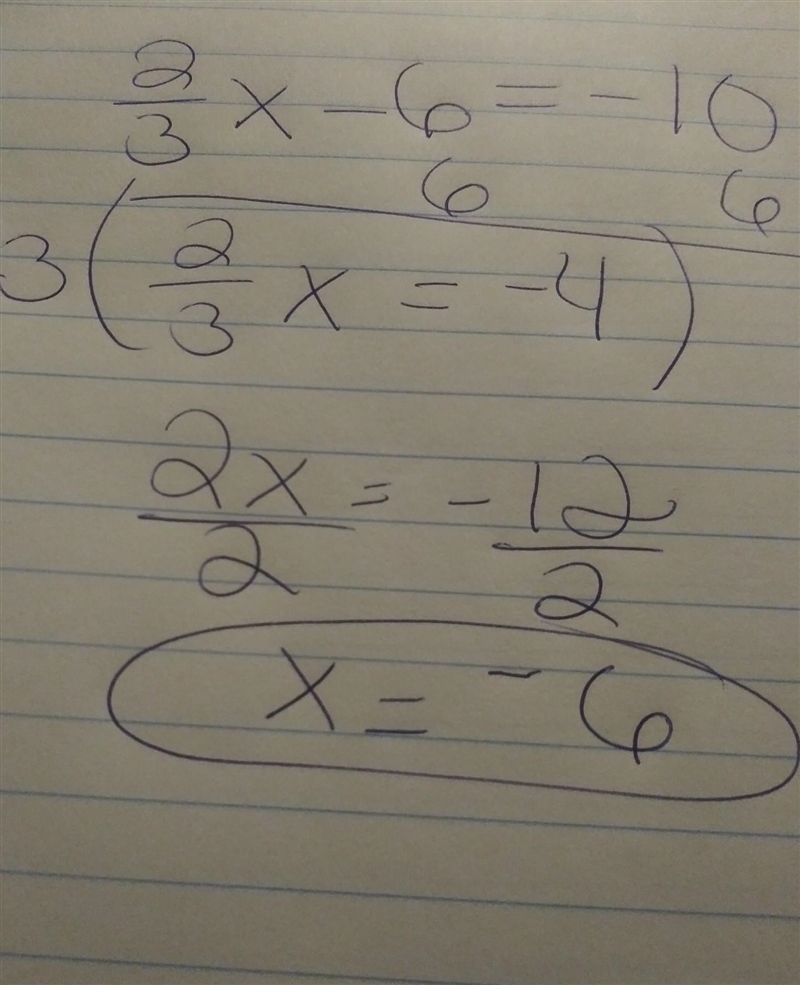 2/3 x - 6 = -10
6 6
3 ( 2/3 x = -4 )
2x/2 = -12/2
x = -6